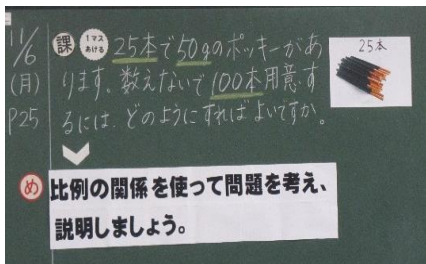 11/6
(月)
P25
課
1マスあける
25本で50gのポッキーがあ
ります。数えないで100本用意す
るには、どのようにすればよいですか。
25本
め
比例の関係を使って問題を考え、
説明しましょう。